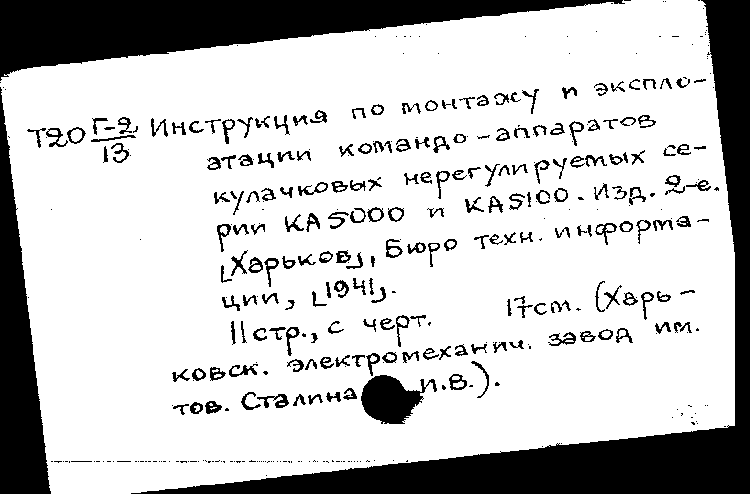 Т20 Г-2/13 Инструкция по монтажу и экспло-
атации командо-аппаратов
кулачковых нерегулируемых се-
рии КА5000 и КА5100. Изд. 2-е.
[Харьков], Бюро техн. информа-
ции, [1941].
11 стр., с черт. 17см. (Харь-
ковск. электромеханич. завод им.
тов. Сталина И.В.).